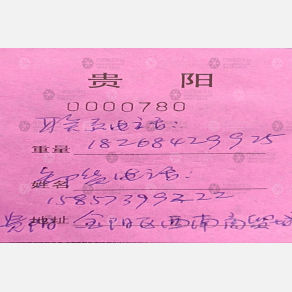 贵 阳
0000780
联系电话:
重量 18268429925
姓名 电话:
15857399222
贵阳 地址 金阳区西南商贸城